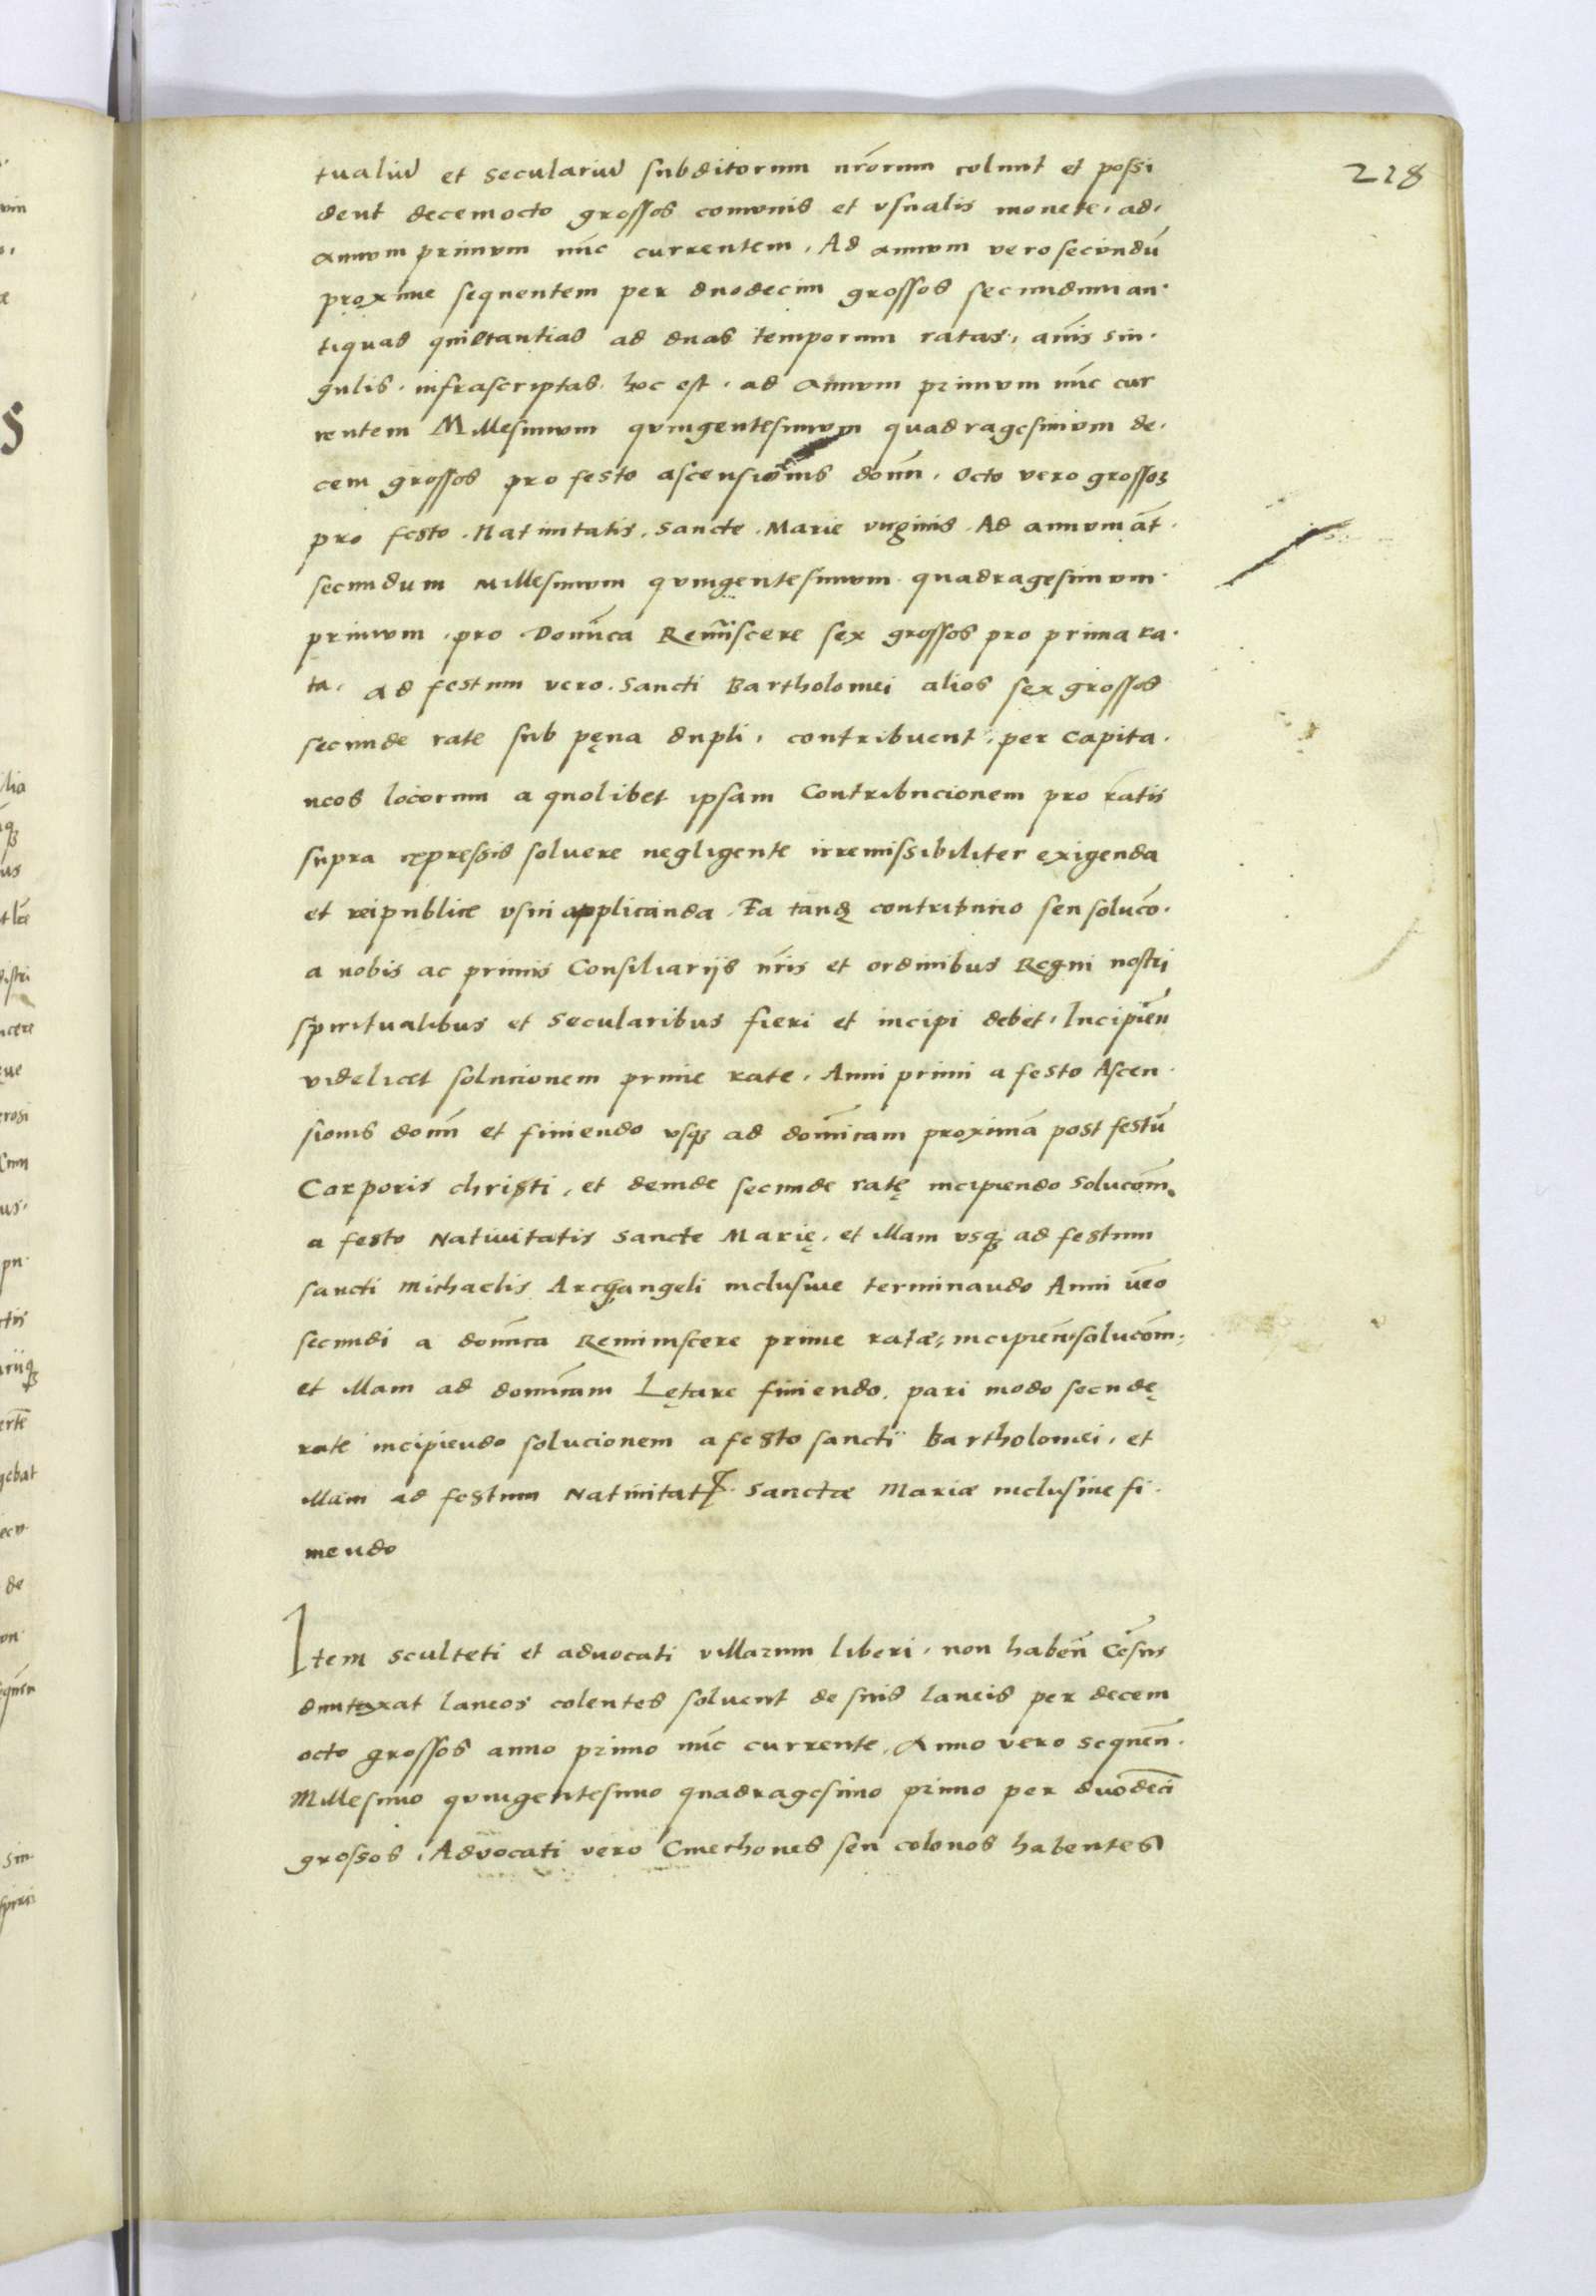 218
tualiũ et seculariũ subditorum nr̃orum colunt et possi
dent decemocto grossos comunis et vsualis monete, ad,
annum primum nũc currentem, Ad annum vero secundũ
proxime sequentem per duodecim grossos secundum an·
tiquas quietantias ad duas temporum ratas, añis sin·
gulis, infrascriptas, hoc est, ad annum primum nũc cur
rentem Millesimum quingentesimum quadragesimum de,
cem grossos pro festo ascensionis domĩ, Octo vero grossos
pro festo Natiuitatis, Sancte, Marie virginis, Ad annum aũt·
secundum Millesimum quingentesimum quadragesimum·
primum, pro Domĩca Remĩiscere sex grossos pro prima ra·
ta, ad festum vero Sancti Bartholomei alios sex grossos
secunde rate sub pęna dupli, contribuent, per capita·
neos locorum a quolibet ipsam Contribucionem pro ratis
supra expressis soluere negligente irremissibiliter exigenda
et reipublice vsui applicanda, Ea tandẽ contributio seu soluco͂·
a nobis ac primis Consiliarijs nr̃is et ordinibus Regni nostri
spiritualibus et Secularibus fieri et incipi debet, Incipieñ
videlicet solucionem prime rate, Anni primi a festo Ascen·
sionis domĩ et finiendo vsqȝ ad domĩicam proximã post festũ
Corporis christi, et deinde secunde ratę incipiendo solucõm,
a festo Natiuitatis sancte Marię, et illam vsqȝ ad festum
sancti Michaelis Archangeli inclusiue terminando Anni ṽeo
secundi a domĩca Reminiscere prime ratæ, incipieñ solucõm,
et illam ad domĩcam Lętare finiendo, pari modo secũdę
rate incipiendo solucionem a festo sancti Bartholomei, et
illam ad festum Natiuitatꝭ Sanctæ Mariæ inclusiue fi·
niendo
Item sculteti et aduocati villarum liberi, non habeñ Cẽsus
dumtaxat laneos colentes soluent de suis laneis per decem
octo grossos anno primo nũc currente, Anno vero sequeñ·
Millesimo quingentesimo quadragesimo primo per duodeci͂
grossos, Advocati vero Cmethones seu colonos habentes